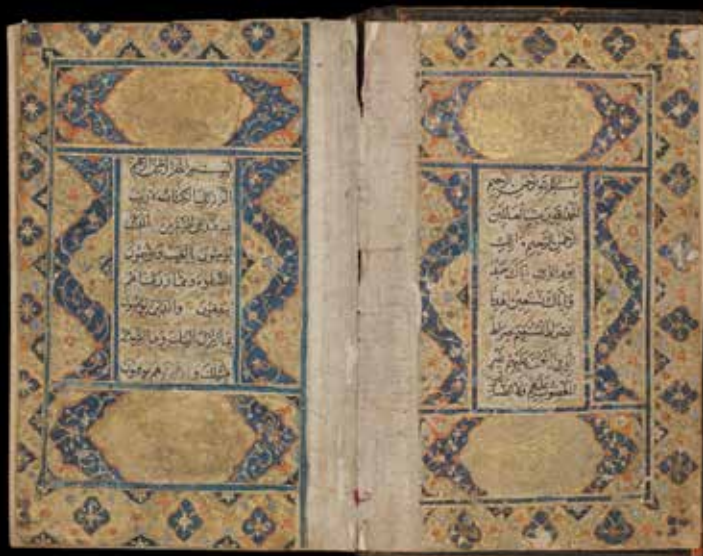 بسم الله الرحمن الرحيم
الحمد لله رب العالمين
الرحمن الرحيم مالك
يوم الدين اياك نعبد
واياك نستعين اهدنا
الصراط المستقيم صراط
الذين انعمت عليهم غير
المغضوب عليهم ولا الضالين
بسم الله الرحمن الرحيم
الم ذلك الكتاب لا ريب
فيه هدى للمتقين الذين
يؤمنون بالغيب ويقيمون
الصلوة ومما رزقناهم
ينفقون والذين يؤمنون
بما انزل اليك وما انزل من
قبلك وبالاخرة هم يوقنون